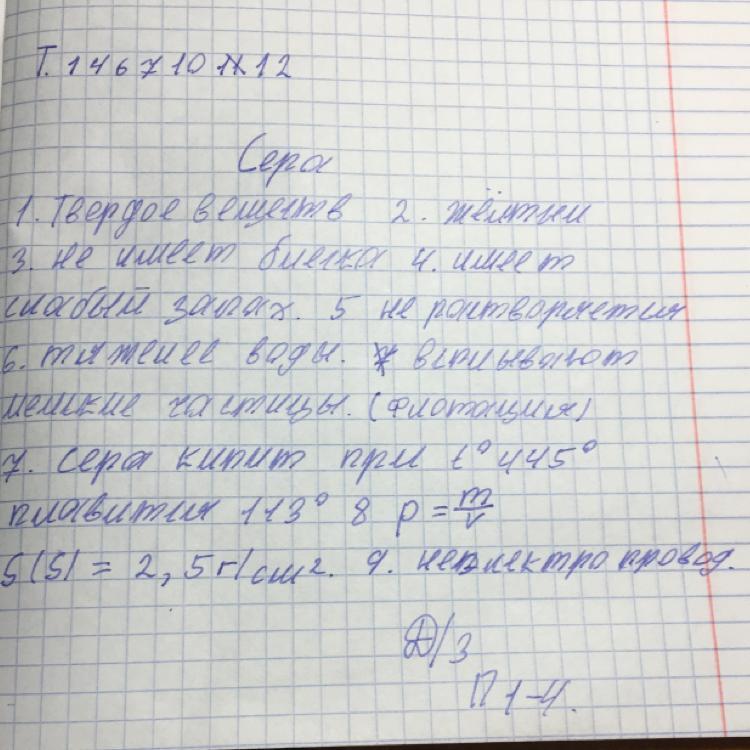 Т. 1 4 6 7 10 11 12
Сера
1. Твердое веществ 2. жёлтый
3. не имеет блеска 4. имеет
слабый запах. 5 не растворяется
6. тяжелее воды. всплывают
мелкие частицы. (флотация)
7. сера кипит при t° 445°
плавится 113° 8 p = m/v
S(S) = 2,5 г/см². 9. неэлектро провод.
Д/З
П 1-4.